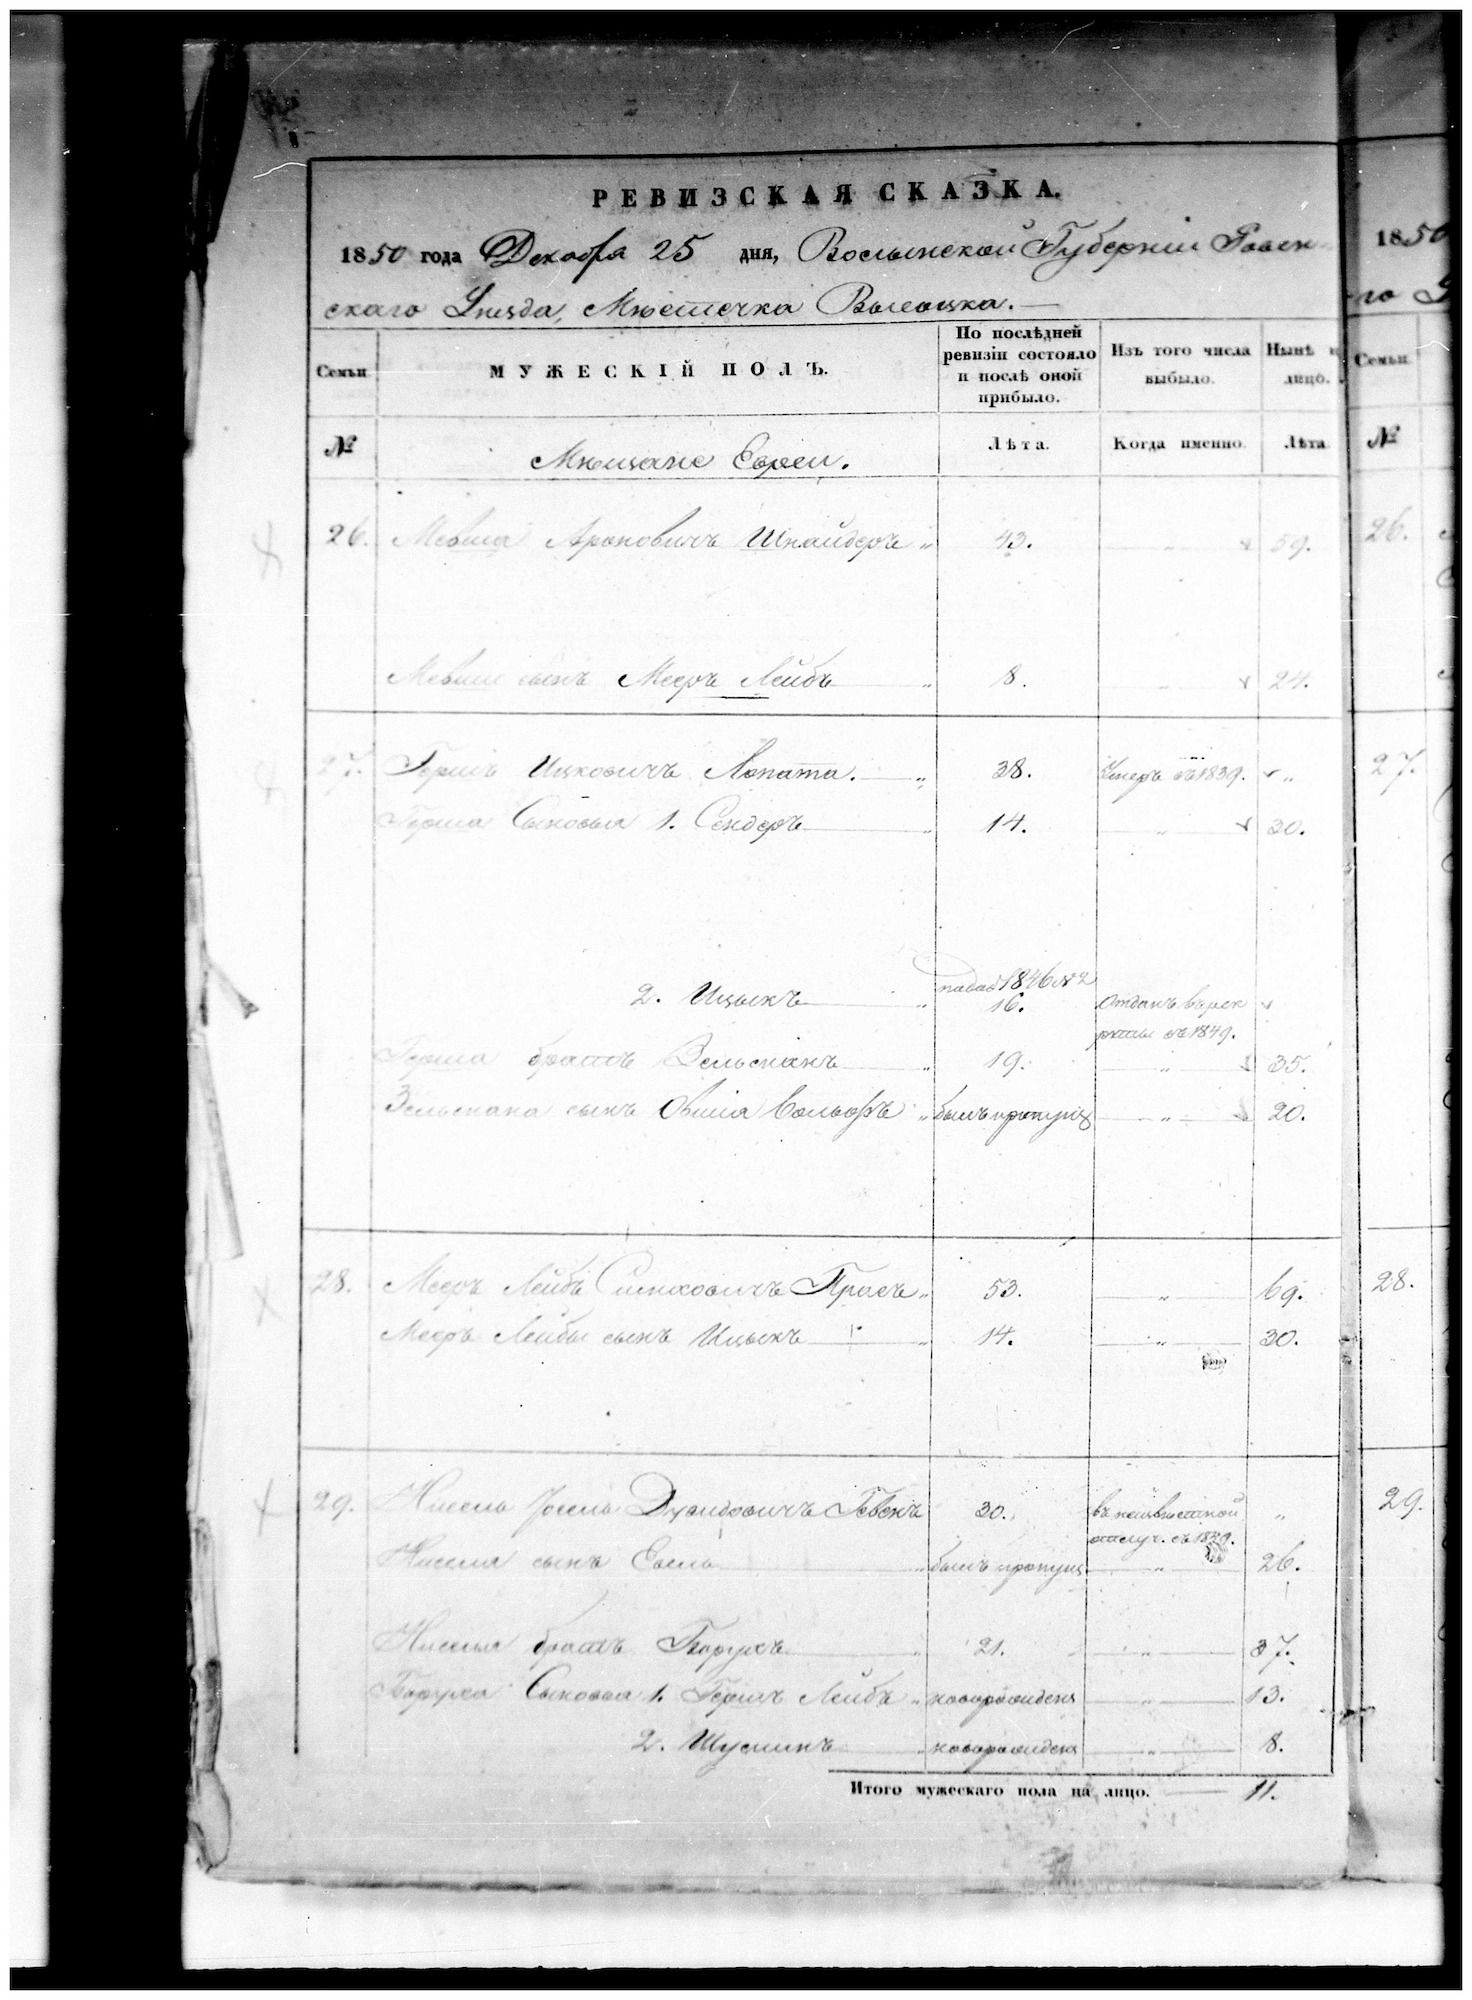 РЕВИЗСКАЯ СКАЗКА.
1850 года Декабря 25 дня, Волынской Губерніи Ровен-
скаго Уѣзда, Мѣстечка Высоцка.
Семьи
МУЖЕСКІЙ ПОЛЪ.
По послѣдней ревизіи состояло и послѣ оной прибыло.
Изъ того числа выбыло.
Нынѣ н лицо.
№
Мѣщане Евреи.
Лѣта.
Когда именно.
Лѣта
26. Мевша Ароновичъ Шнайдеръ „ 43. „ 59.
Мевши сынъ Мееръ Лейбъ „ 8. „ 24.
27. Гершъ Ицковичъ Лопата. „ 38. Умеръ въ 1839. „
Герша Сыновья 1. Сендеръ „ 14. „ 30.
1846 №2
2. Ицыкъ „ 16. Отданъ въ рек
руты въ 1849.
Герша братъ Зельманъ „ 19. „ 35.
Зельмана сынъ Овшія Вольфъ „ былъ пропущ „ 20.
28. Мееръ Лейбъ Прасъ „ 53. „ 69.
Мееръ Лейбы сынъ Ицыкъ „ 14. „ 30.
29. Нисель Іосель Давидовичъ 30. въ неизвѣстной „
отлуч. съ 1839.
Нисела сынъ „ былъ пропущ „ 26.
Нисела братъ Борухъ „ 21. „ 37.
Боруха Сыновья 1. Гершъ Лейбъ „ новорожденъ „ 13.
2. Шулимъ „ новорожденъ „ 8.
Итого мужескаго пола на лицо. 11.
1850
го
Семьи
№
26.
27.
28.
29.